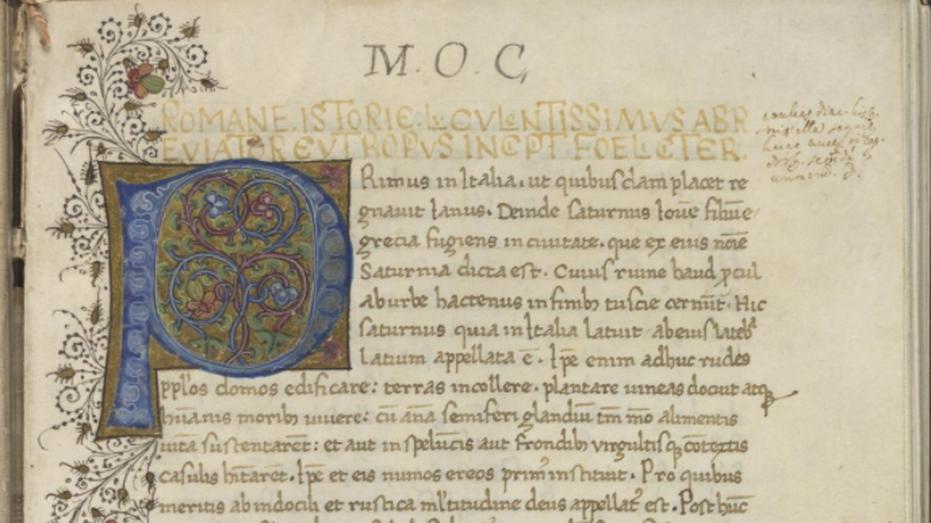 M. O. C,
ROMANE. ISTORIE. LVCVLENTISSIMVS ABR
EVIATOR EVTROPVS INCIPT FOELICITER.
PRimus in Italia. ut quibusdam placet re
gnauit Ianus. Deinde Saturnus Ioue͂ filiu͂e
grecia fugiens in ciuitate. que ex eius no͂ie
Saturnia dicta est. Cuius ruine haud ꝓcul
ab urbe hactenus in finibꝫ tuscie cernu͂t. Hic
Saturnus quia in Italia latuit. ab eius lateb͛a
Latium appellata e͂. Ip͂e enim adhuc rudes
pp͂l'os domos edificare: terras incollere. plantare uineas docuit atqꝫ
hu͂anis moribꝫ uiuere: cu͂ an͂a semiferi glandiu͂ tm͂ mo͂ alimentis
uita͂ sustentare͂t: et aut in spelu͂cis aut frondibꝫ virgultisqꝫ co͂textis
casulis h͂itare͂t. Ip͂e et eis numos ereos prim᷒ instituit. Pro quibus
meritis ab indocili et rustica ml'titudine deus appellat᷒ est. Post hu͂c